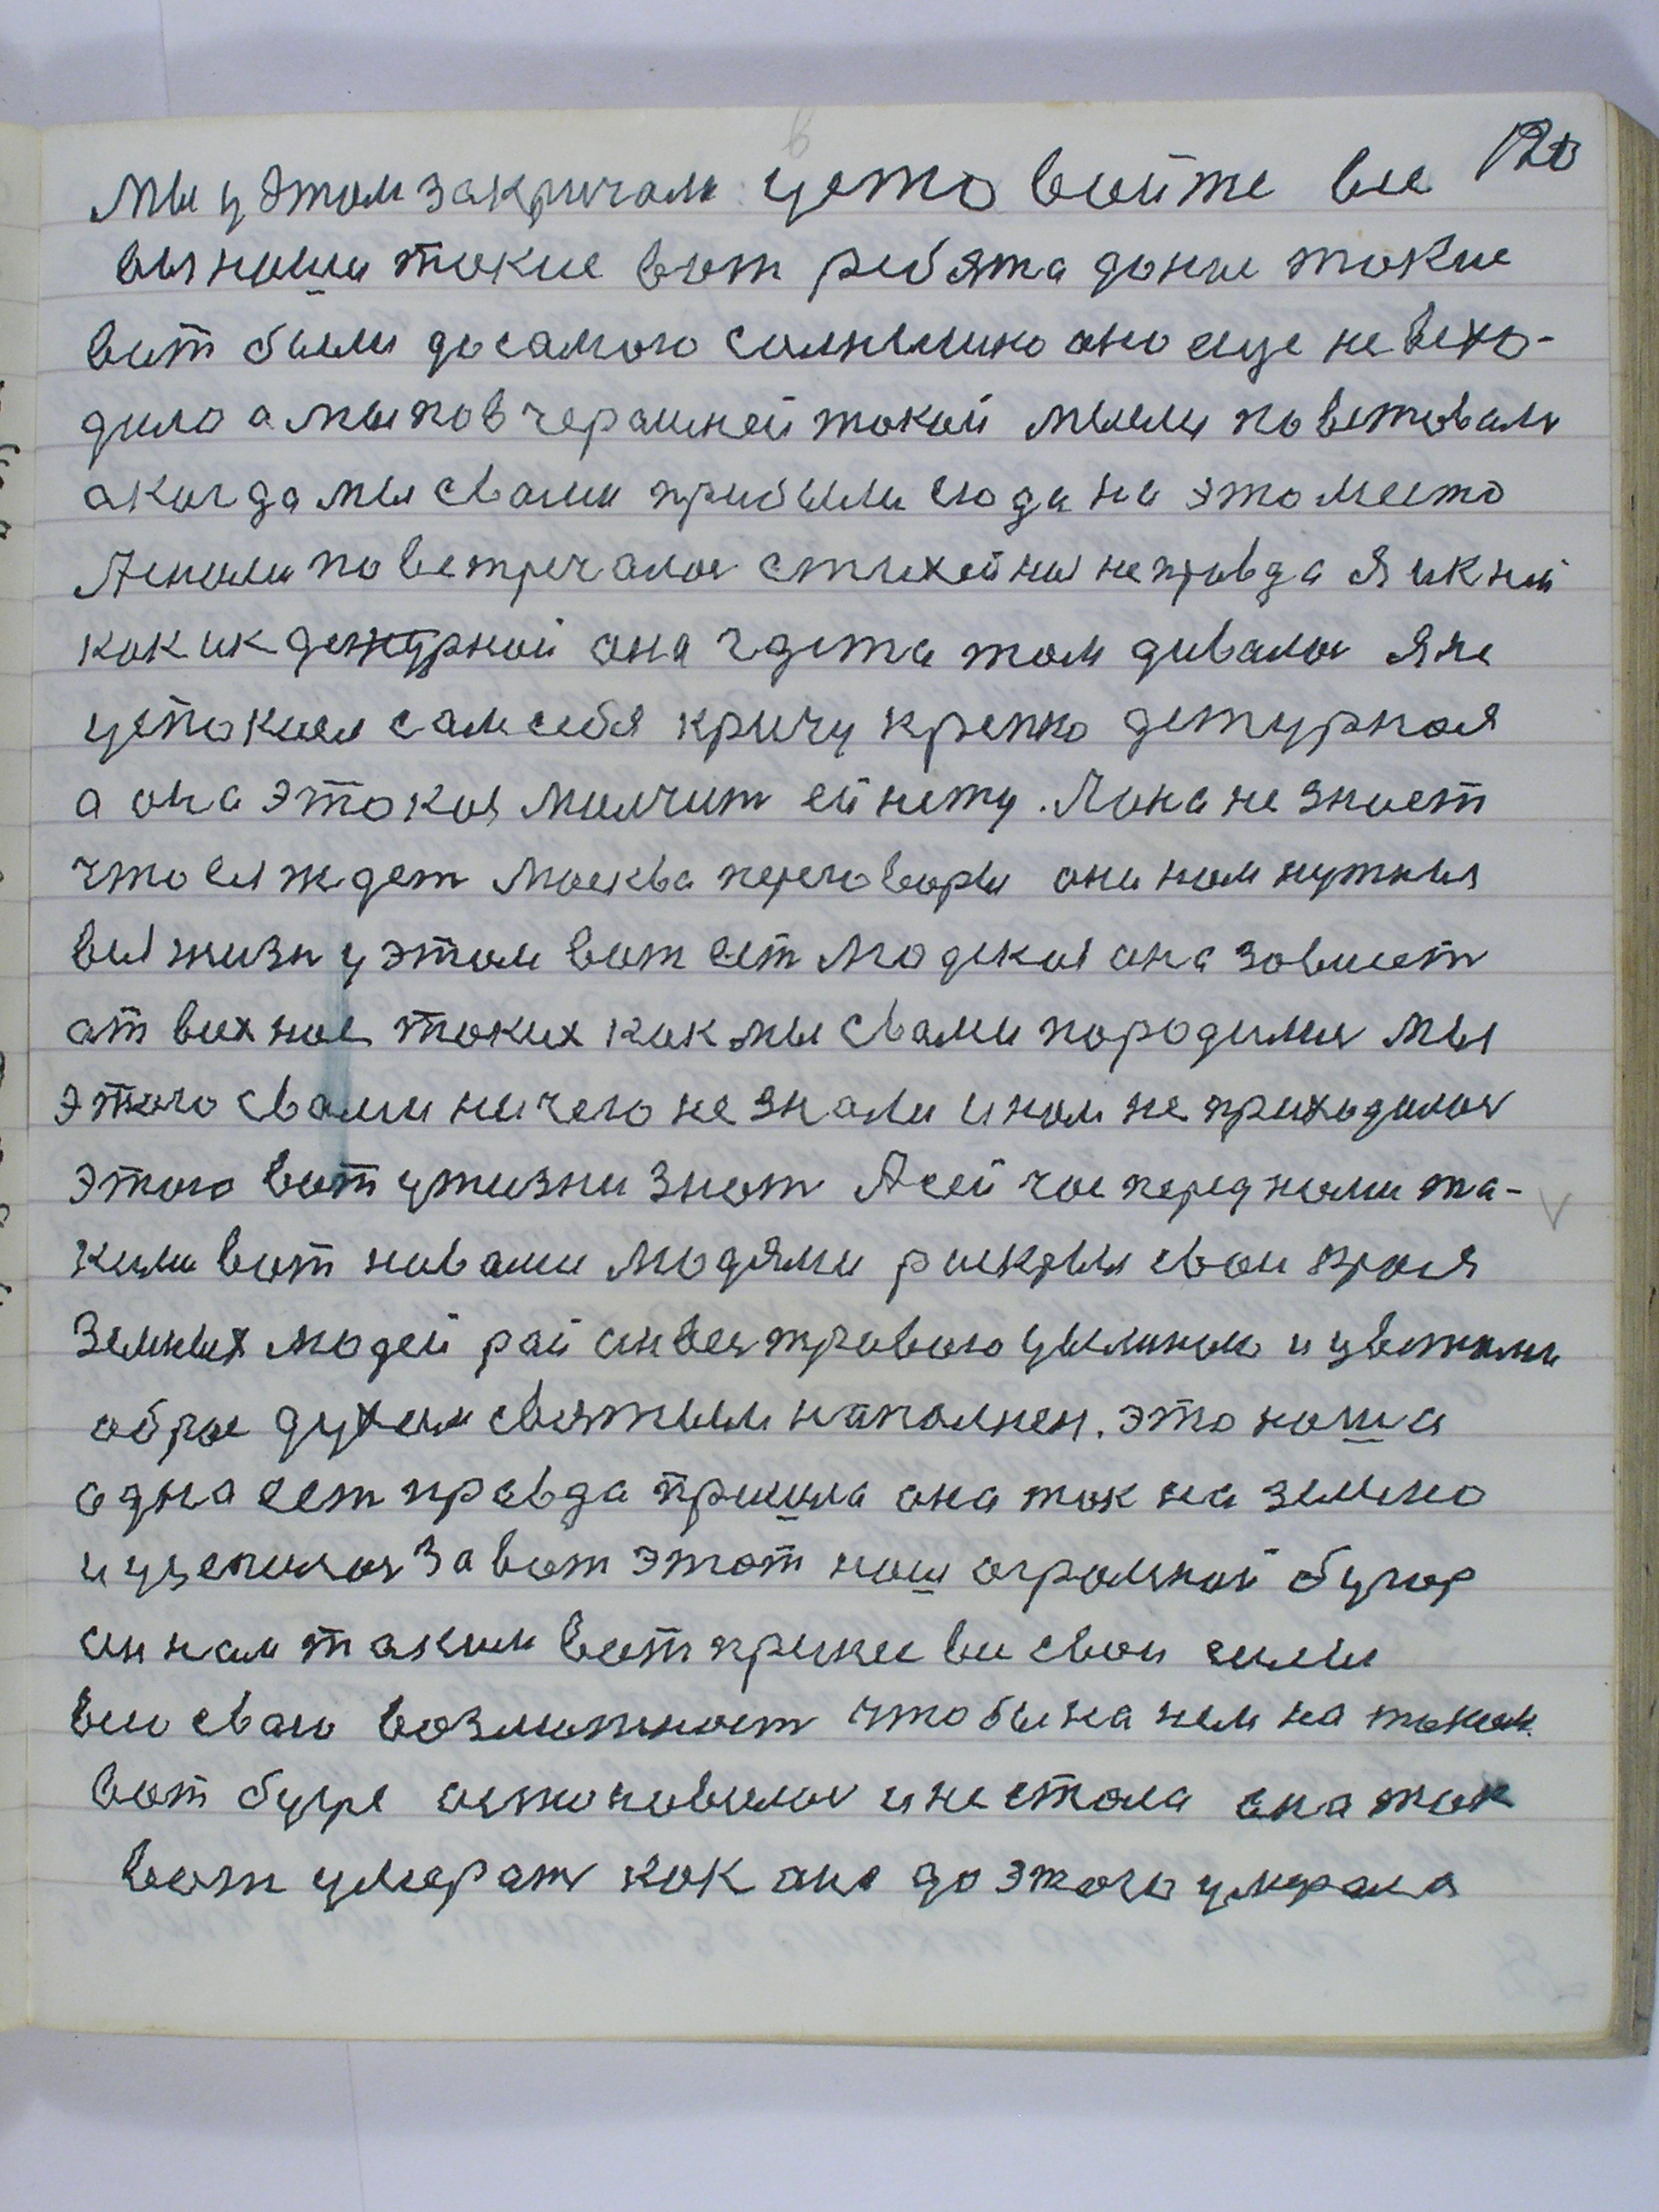 120
Мы у этом закричали устовайте все
вы наши такие вот ребята донне такие
вот были до самого солнышко оно еще невехо-
дило а мы повчерашней такой мысли поветовали
акагда мы свами прибыли сюда на это место
А снами поветречалос стихейны неправда Я ик ней
как ик дежурной она гдета там дивалас Яне
успокоел сам себя кричу крепко детурная
а она этакая молчит ей нету. Аона не знает
что ея ждет Москва переговоры они нам нутныя
вея жизн у этом вот ест людская она зависет
ат вех нас таких как мы свами породилис мы
этого свами ничего не знали инам не приходилос
этого вот ужизни знат А сейчас перед нами та-
кими вот новыми людями раскрыл свои края
Земных людей рай онвес травою уселином и цветами
оброс духам святыем наполнен. это наша
одна ест правда пришла она так на землю
и уцепилас за вот этот наш аграмной бугор
он нам таким вот принес вси свои силы
всю сваю возмитност чтобы на нем на такем
вот бугре астоновилос и не стала она так
вот умерат как ано до этого умерала